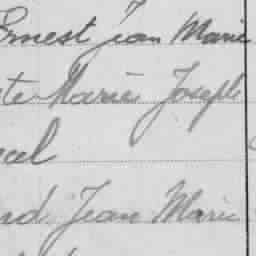 Ernest Jean Marie
te Marie Joseph
cel
rd Jean Marie